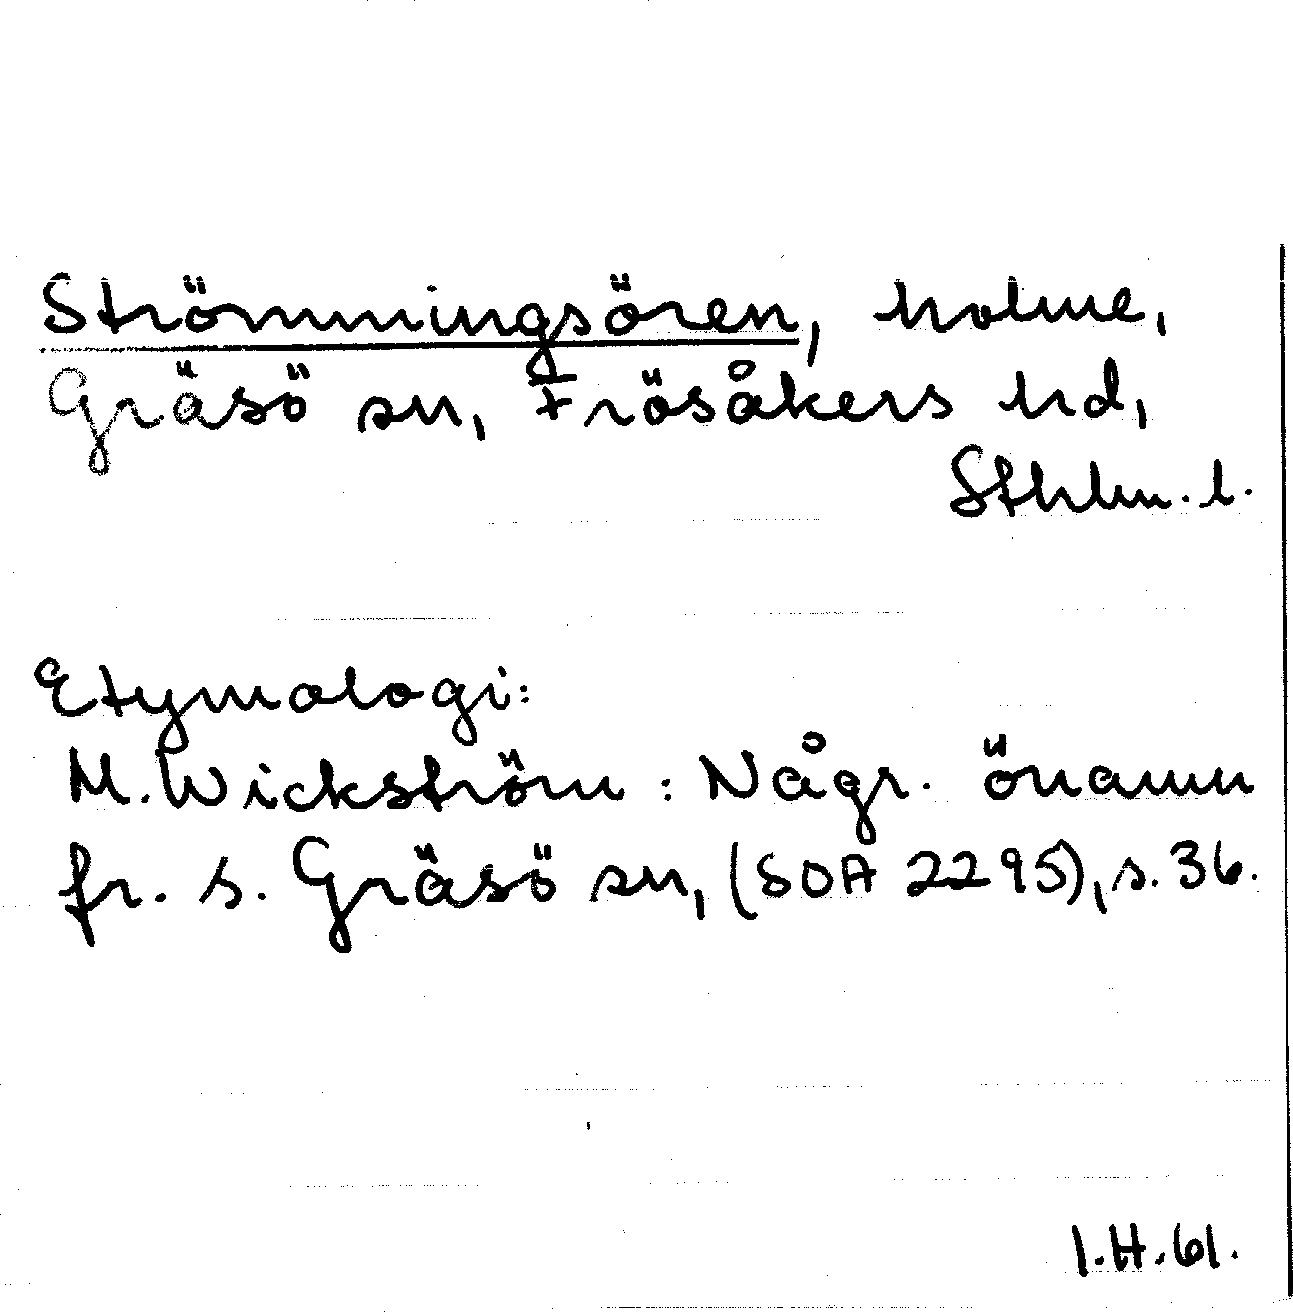 Strömmingsören, holme,
Gräsö sn, Frösåkers hd,
Sthlm. l.
Etymologi:
M. Wickström : Någr. önamn
fr. s. Gräsö sn, (SOA 2295), s. 36.
I.H. 61.